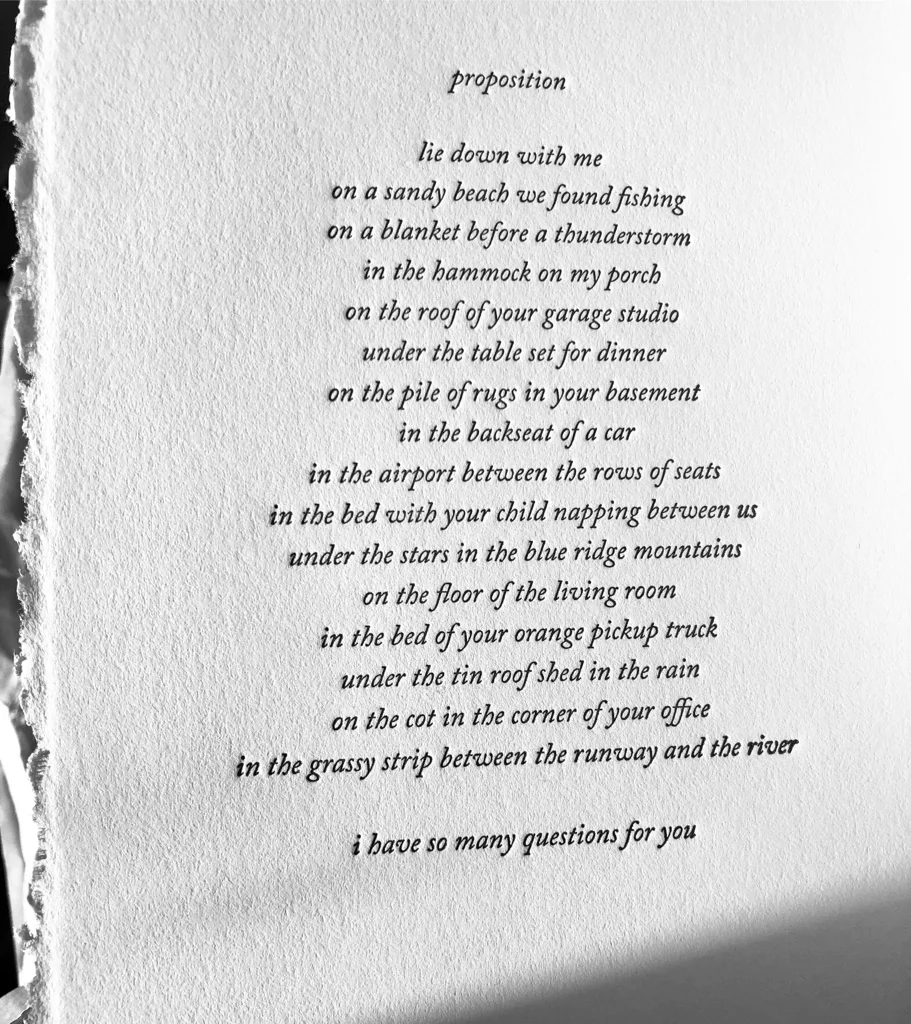 proposition
lie down with me
on a sandy beach we found fishing
on a blanket before a thunderstorm
in the hammock on my porch
on the roof of your garage studio
under the table set for dinner
on the pile of rugs in your basement
in the backseat of a car
in the airport between the rows of seats
in the bed with your child napping between us
under the stars in the blue ridge mountains
on the floor of the living room
in the bed of your orange pickup truck
under the tin roof shed in the rain
on the cot in the corner of your office
in the grassy strip between the runway and the river
i have so many questions for you